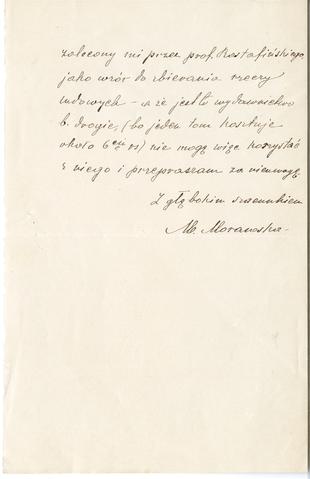 zalecony mi przez prof. Rostafińskiego,
jako wzór do zbierania rzeczy
ludowych – a że jest to wydawnictwo
b. drogie, (bo jeden tom kosztuje
około 6ciu rs) nie mogę więc korzystać
z niego i przepraszam za
Z głębokim szacunkiem
M. Moraw